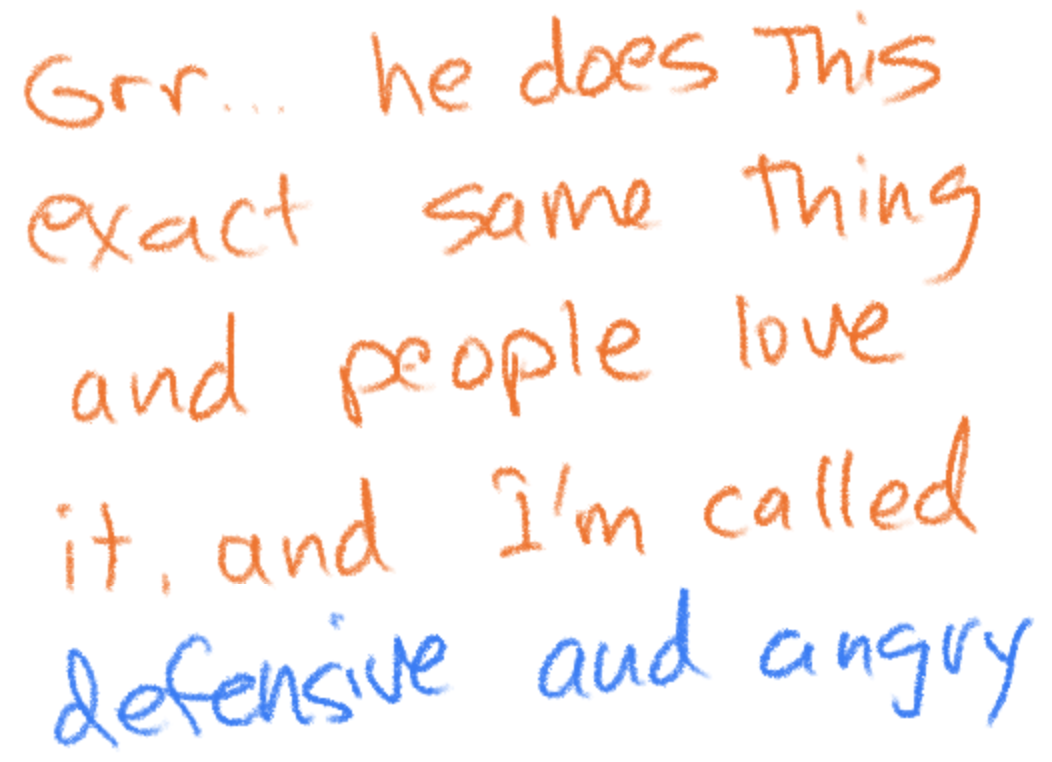 Grr... he does This
exact same Thing
and people love
it, and I'm called
defensive and angry